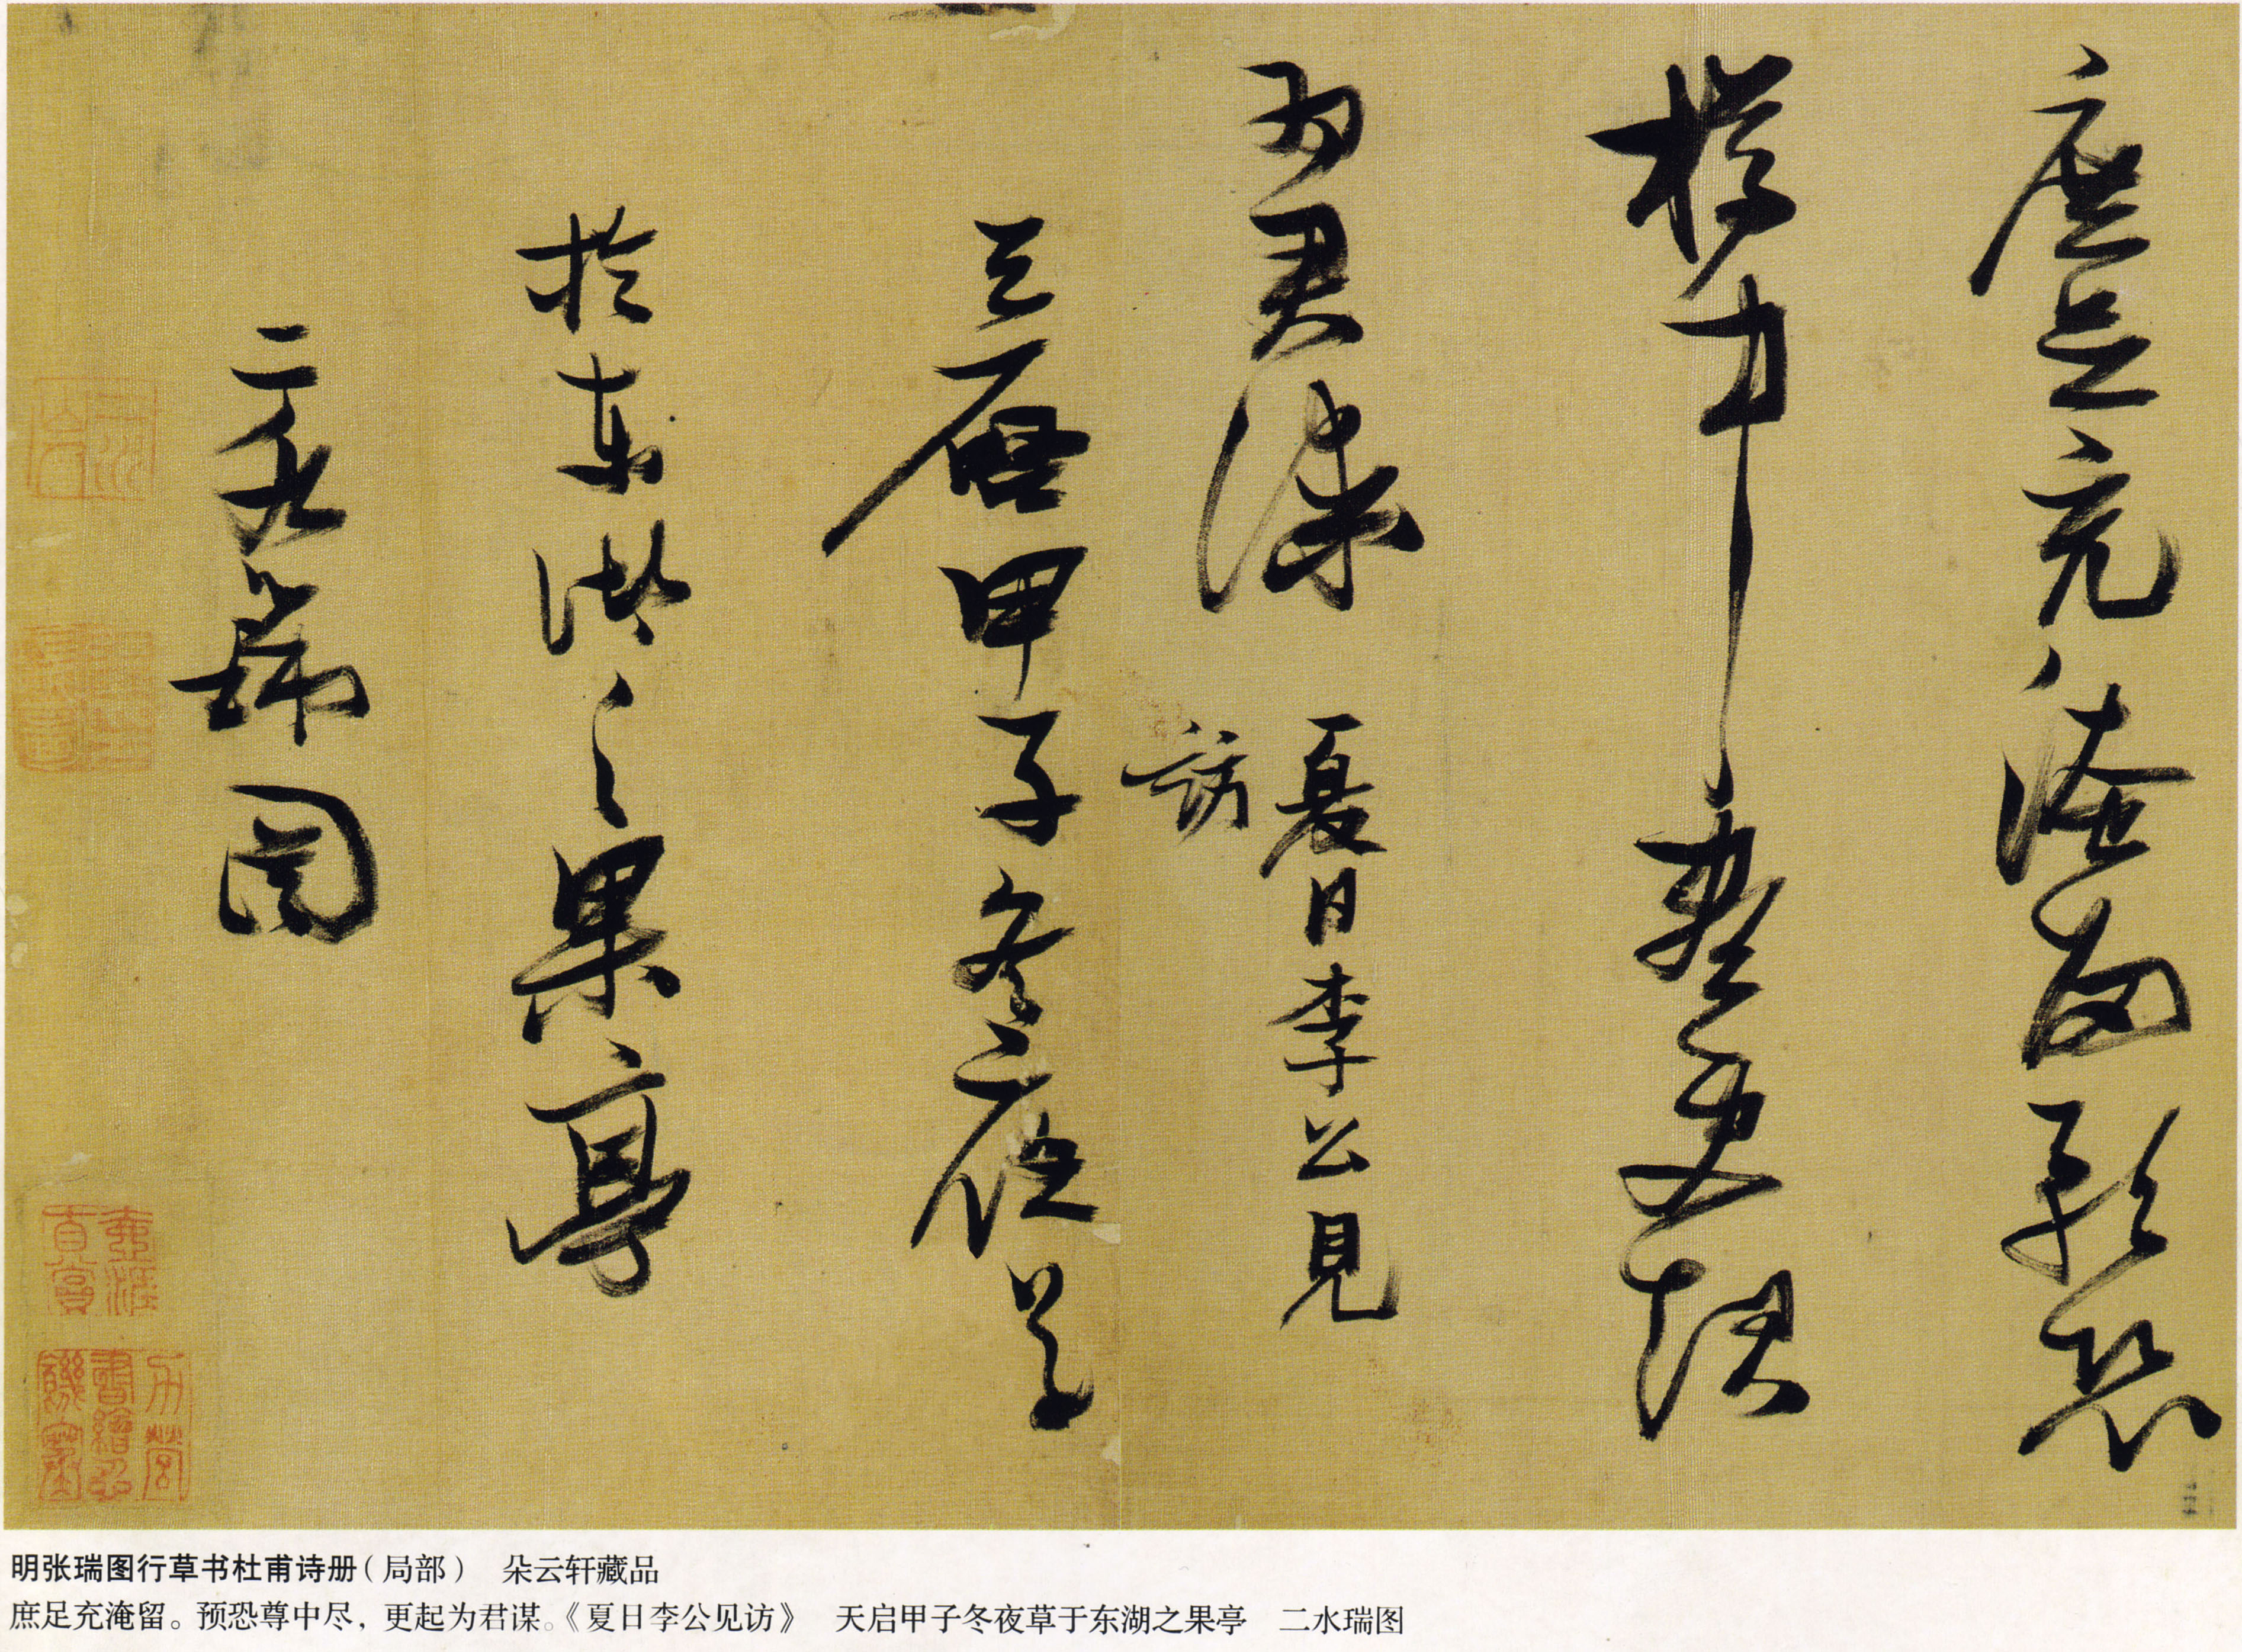 庶足充淹留預恐
樽中盡更起
為君謀 夏日李公見
訪
天啓甲子冬夜草
於東湖之果亭
二水瑞圖
明张瑞图行草书杜甫诗册（局部） 朵云轩藏品
庶足充淹留。预恐尊中尽，更起为君谋。《夏日李公见访》 天启甲子冬夜草于东湖之果亭 二水瑞图